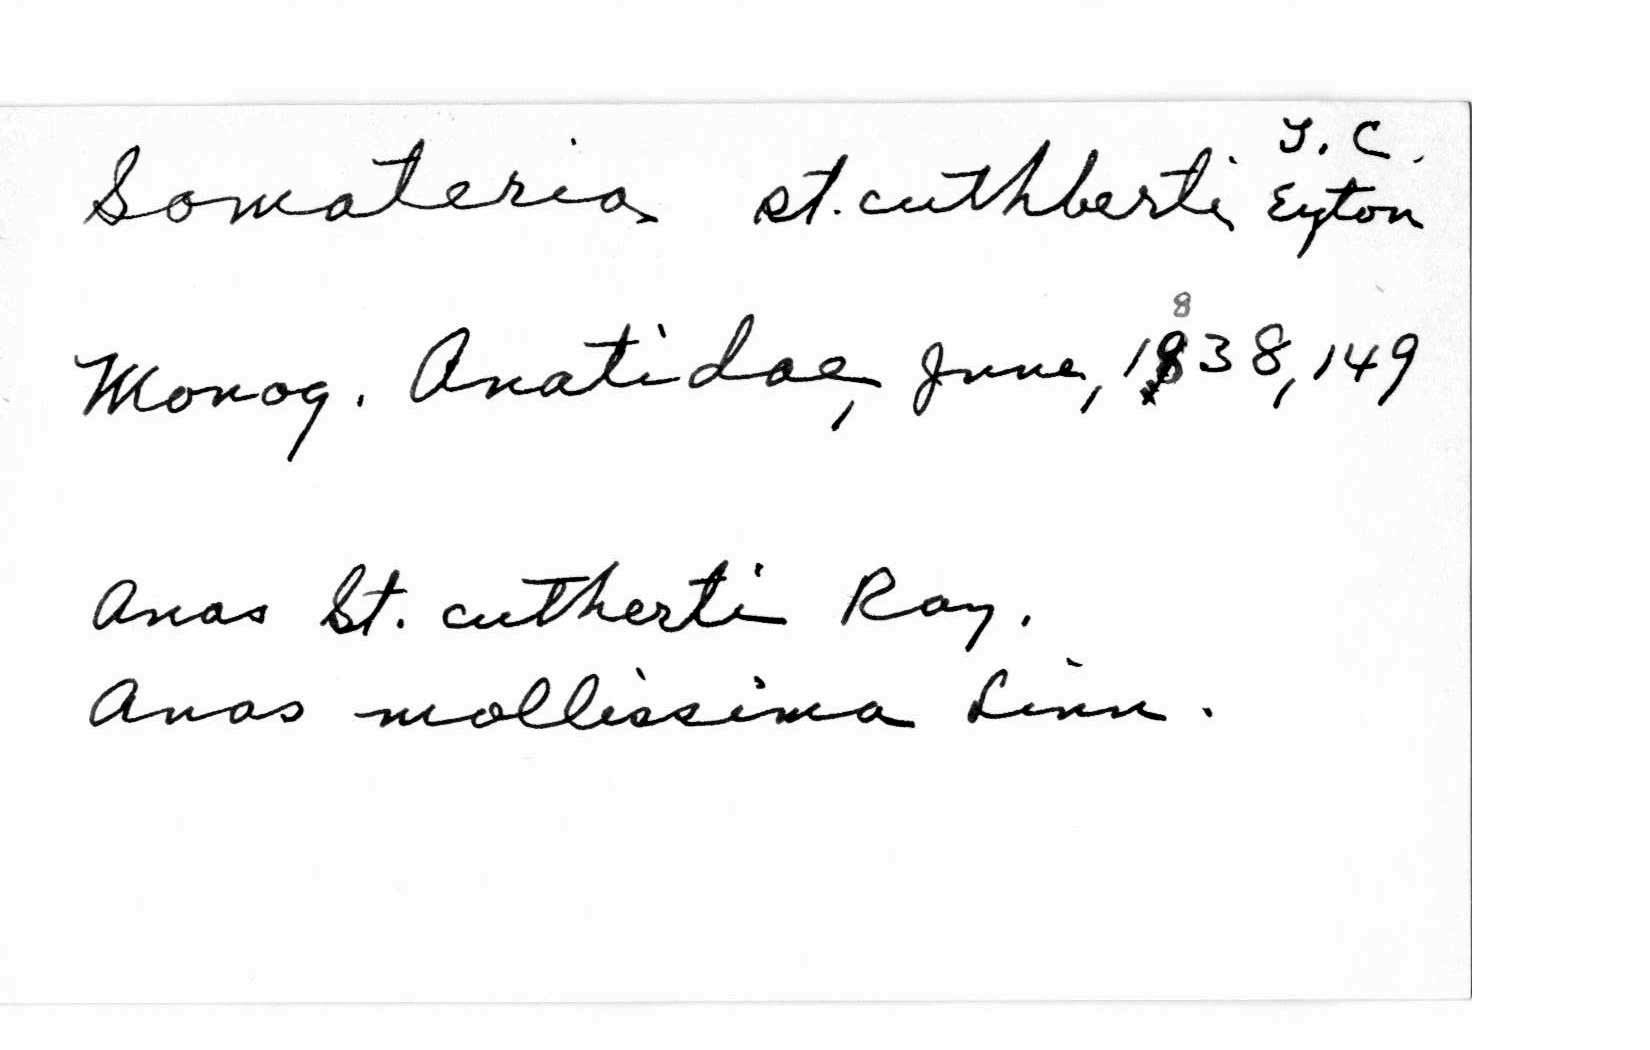 Somateria st. cuthberti T. C. Eyton
Monog. Anatidae, June, 1838, 149
Anas St. cutherti Ray.
Anas mollissima Linn.